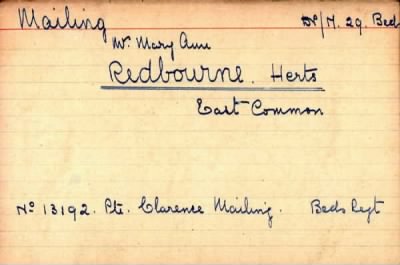 Mailing D/M. 29. Bed
Mrs. Mary Ann
Redbourne. Herts
East Common
No 13192. Pte. Clarence Mailing. Beds Regt